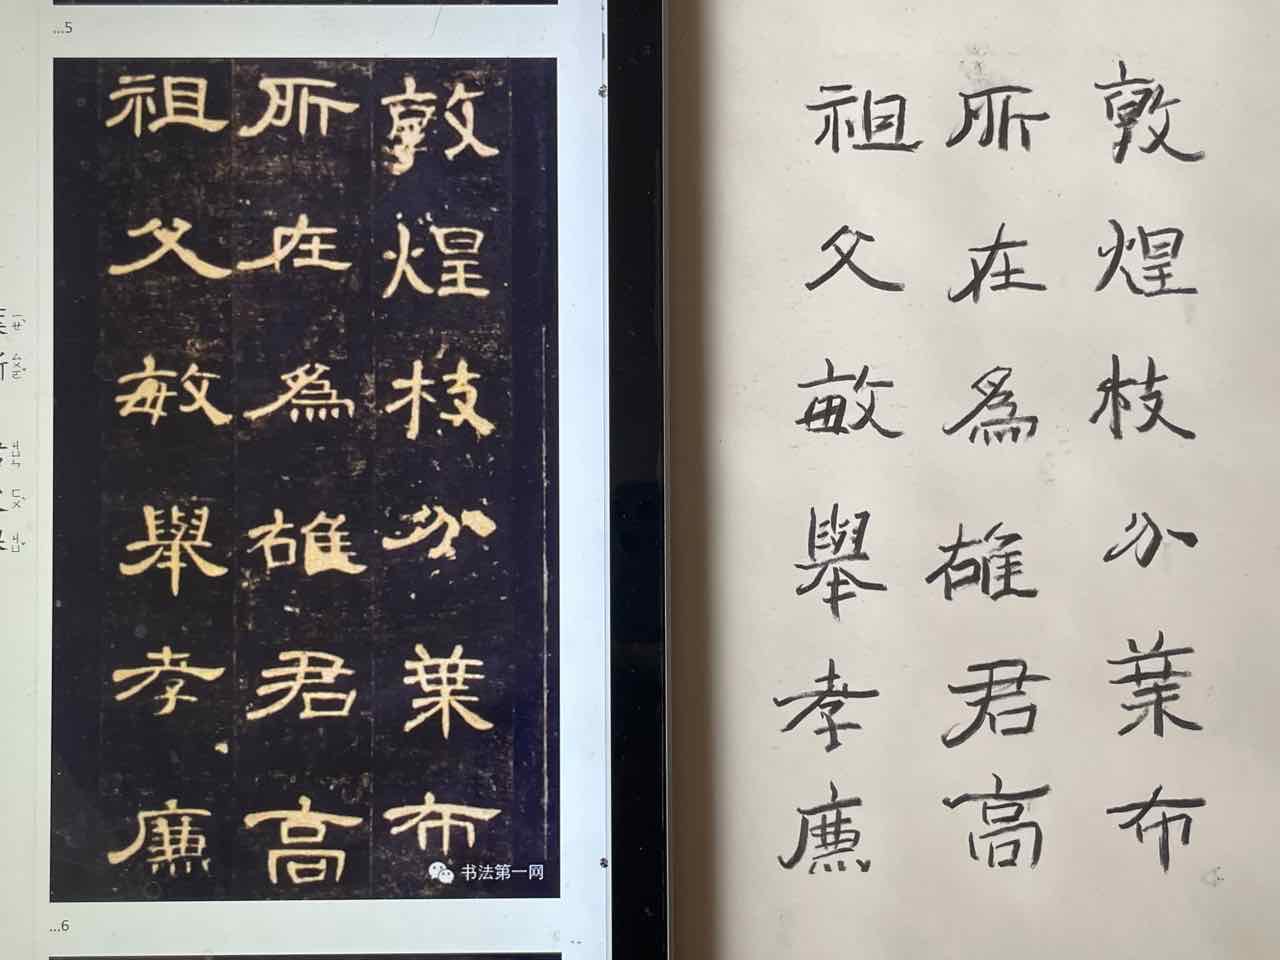 ...5
敦煌枝分葉布
所在為雄君高
祖父敏舉孝廉
书法第一网
...6
敦煌枝分葉布
所在為雄君高
祖父敏舉孝廉